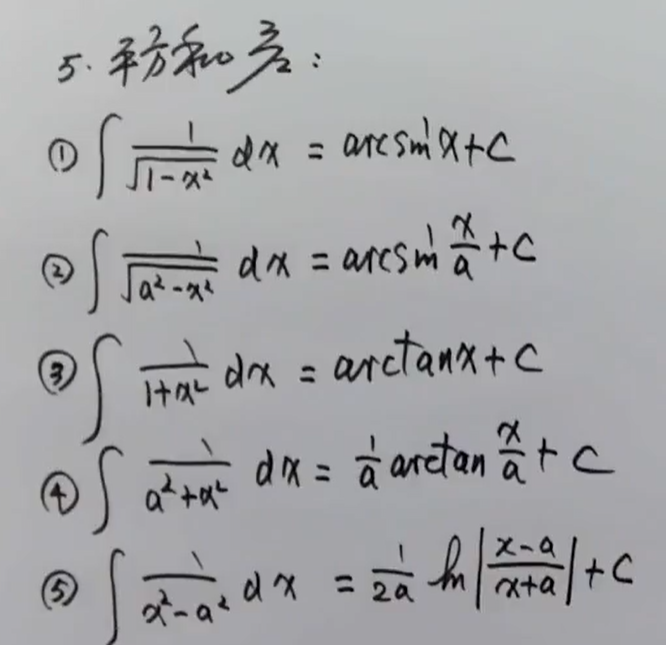 5. 平方和差:
① ∫ 1/√(1-x²) dx = arcsin x + C
② ∫ 1/√(a²-x²) dx = arcsin x/a + C
③ ∫ 1/(1+x²) dx = arctan x + C
④ ∫ 1/(a²+x²) dx = 1/a arctan x/a + C
⑤ ∫ 1/(x²-a²) dx = 1/2a ln|(x-a)/(x+a)| + C